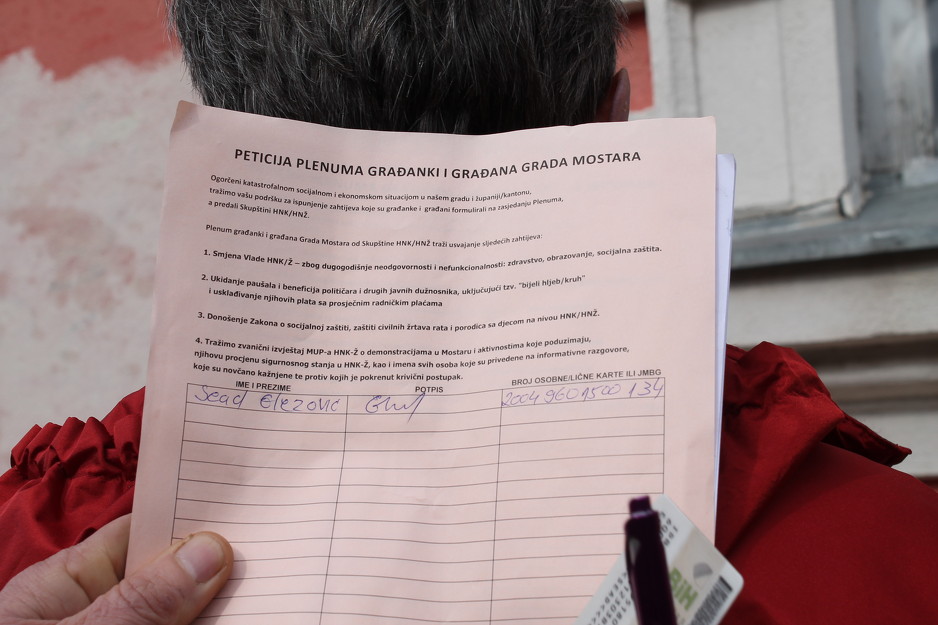 PETICIJA PLENUMA GRAĐANKI I GRAĐANA GRADA MOSTARA
Ogorčeni katastrofalnom socijalnom i ekonomskom situacijom u našem gradu i županiji/kantonu,
tražimo vašu podršku za ispunjenje zahtijeva koje su građanke i građani formulirali na zasjedanju Plenuma,
a predali Skupštini HNK/HNŽ.
Plenum građanki i građana Grada Mostara od Skupštine HNK/HNŽ traži usvajanje sljedećih zahtijeva:
1. Smjena Vlade HNK/Ž – zbog dugogodišnje neodgovornosti i nefunkcionalnosti: zdravstvo, obrazovanje, socijalna zaštita.
2. Ukidanje paušala i beneficija političara i drugih javnih dužnosnika, uključujući tzv. "bijeli hljeb/kruh"
i usklađivanje njihovih plata sa prosječnim radničkim plaćama
3. Donošenje Zakona o socijalnoj zaštiti, zaštiti civilnih žrtava rata i porodica sa djecom na nivou HNK/HNŽ.
4. Tražimo zvanični izvještaj MUP-a HNK-Ž o demonstracijama u Mostaru i aktivnostima koje poduzimaju,
njihovu procjenu sigurnosnog stanja u HNK-Ž, kao i imena svih osoba koje su privedene na informative razgovore,
koje su novčano kažnjene te protiv kojih je pokrenut krivični postupak.
IME I PREZIME POTPIS BROJ OSOBNE/LIČNE KARTE ILI JMBG
Sead Elezović 20049601500 134